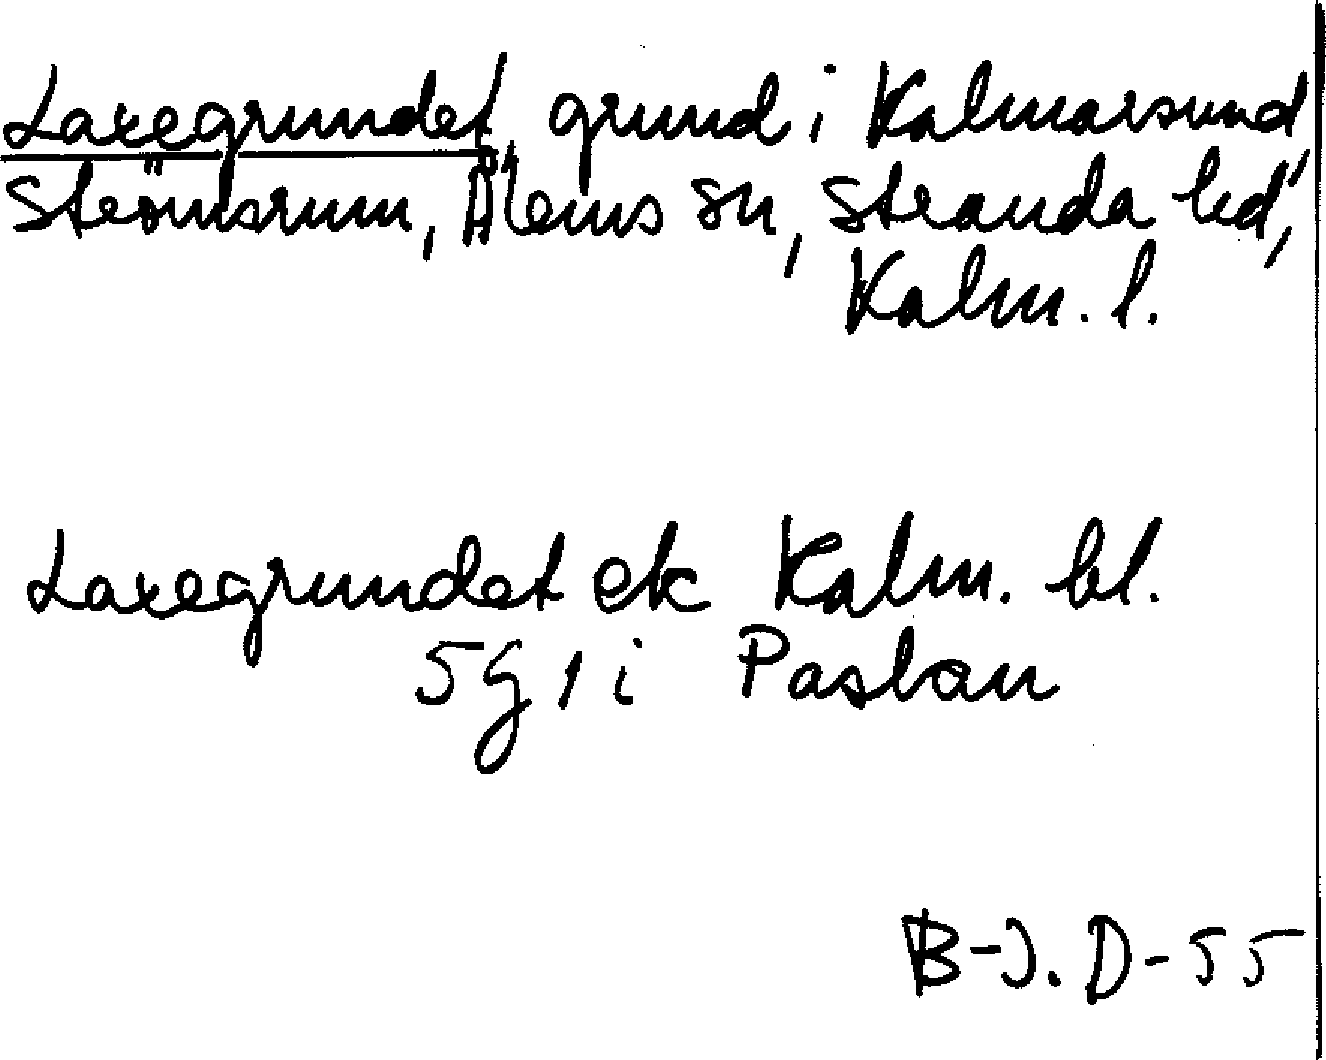 Laxegrundet, grund i Kalmarsund,
Strömsrum, Ålems sn, Stranda hd,
Kalm. l.
Laxegrundet ek Kalm. bl.
5 g, i Pasban
B-J. D-55